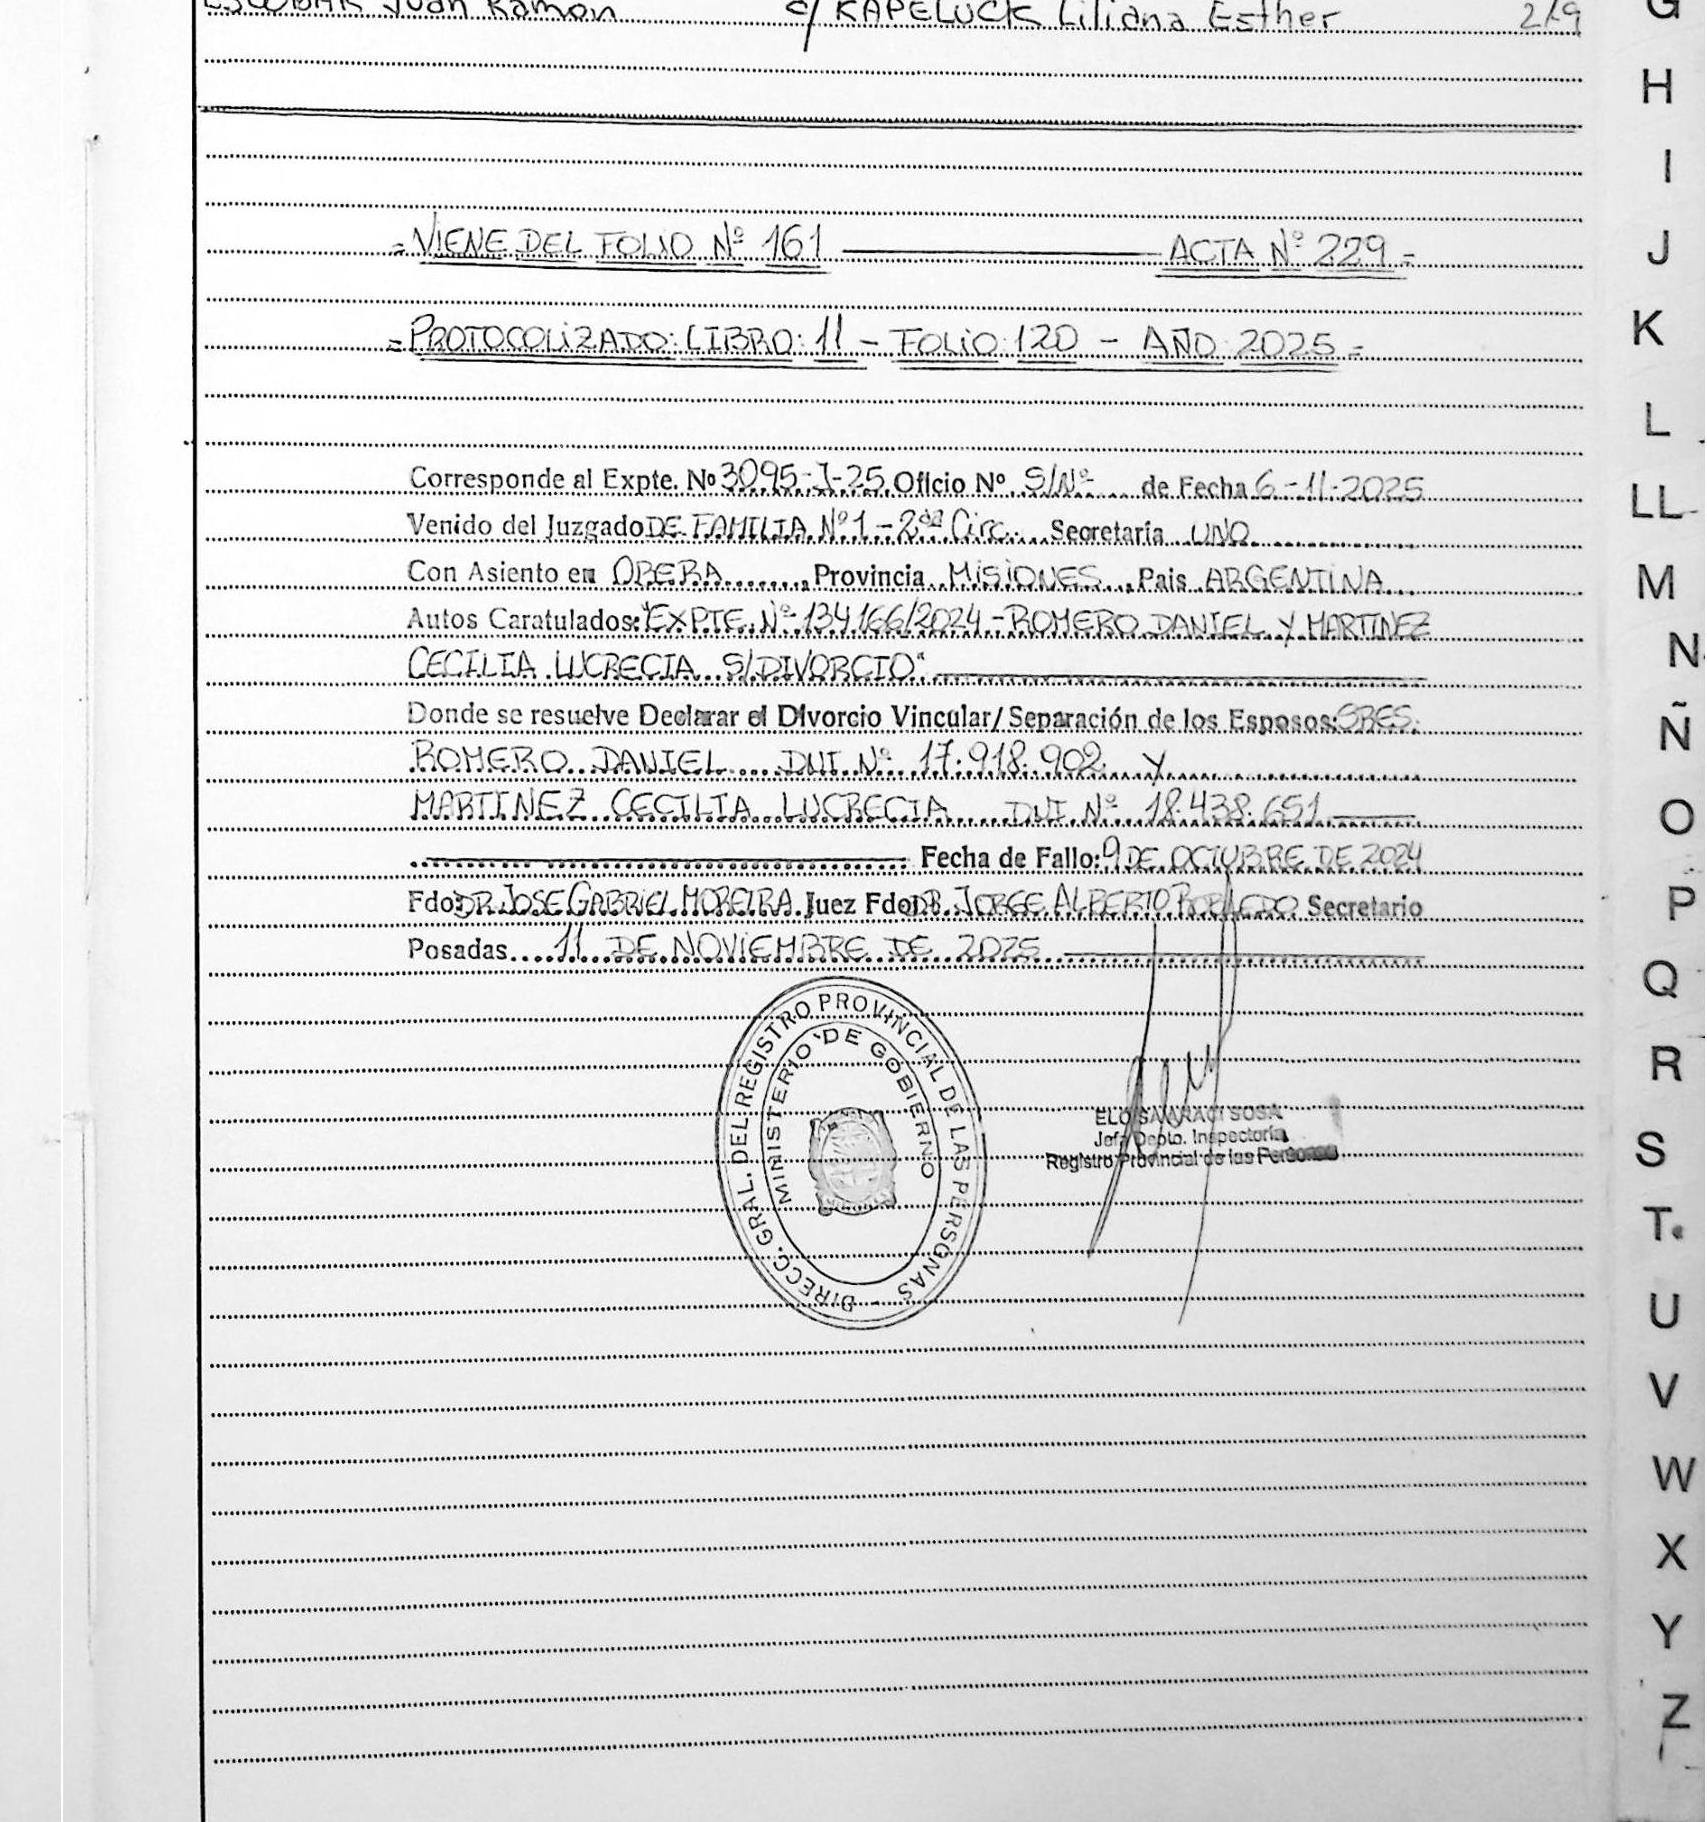 ESCOBAR Juan Ramon c/ KAPELUCK Liliana Esther 219
= VIENE DEL FOLIO Nº 161 ACTA Nº 229 =
= PROTOCOLIZADO: LIBRO: 11 - FOLIO: 120 - AÑO 2025 =
Corresponde al Expte. Nº 3095-J-25 Oficio Nº S/Nº de Fecha 6-11-2025
Venido del Juzgado DE FAMILIA Nº 1 - 2da Circ. Secretaría UNO
Con Asiento en OBERA, Provincia MISIONES, Pais ARGENTINA
Autos Caratulados: "EXPTE. Nº 134166/2024 - ROMERO DANIEL Y MARTINEZ
CECILIA LUCRECIA S/DIVORCIO"
Donde se resuelve Declarar el Divorcio Vincular/Separación de los Esposos: SRES.
ROMERO DANIEL DNI Nº 17.918.902 Y
MARTINEZ CECILIA LUCRECIA DNI Nº 18.438.651
Fecha de Fallo: 9 DE OCTUBRE DE 2024
Fdo: DR JOSE GABRIEL MOREIRA Juez Fdo: DR. JORGE ALBERTO Secretario
Posadas 11 DE NOVIEMBRE DE 2025
DIRECC. GRAL. DEL REGISTRO PROVINCIAL DE LAS PERSONAS
MINISTERIO DE GOBIERNO
SOSA
Jefa Depto. Inspectoría
Registro Provincial de las Personas
G
H
I
J
K
L
LL
M
N
Ñ
O
P
Q
R
S
T
U
V
W
X
Y
Z